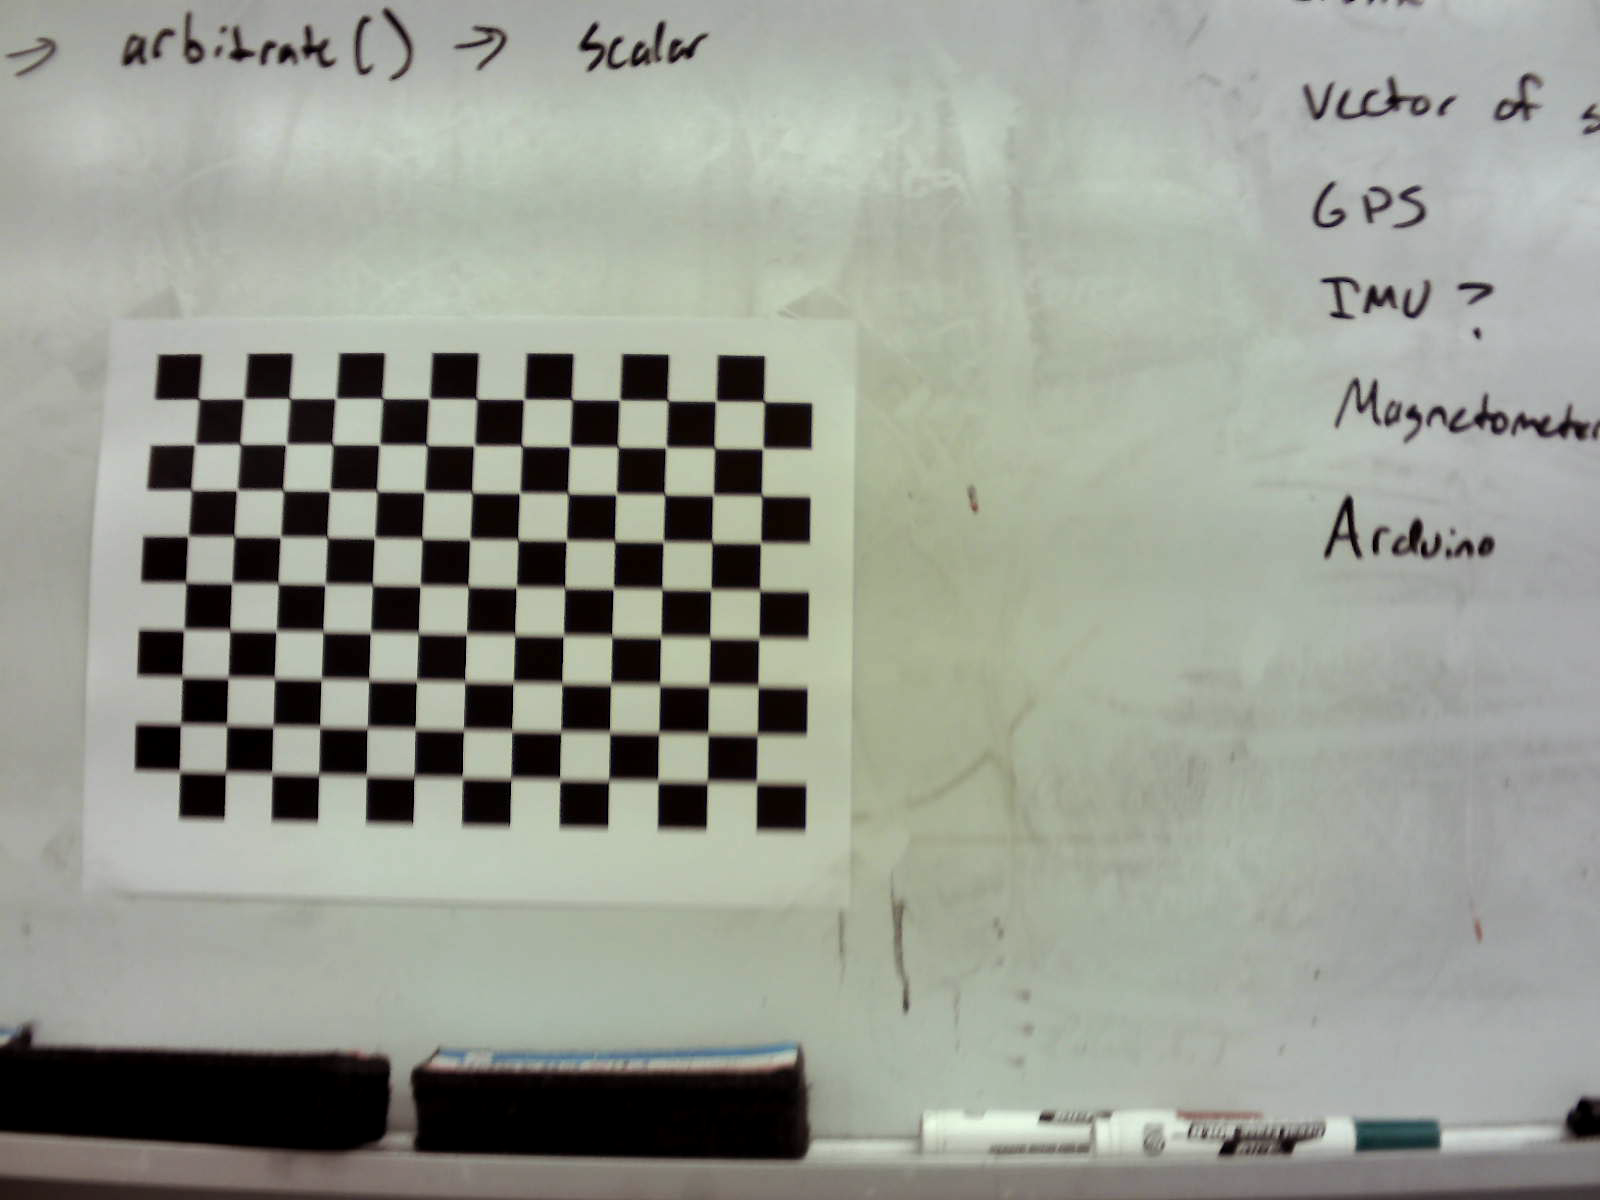 → arbitrate() → scalar
vector of
GPS
IMU ?
Magnetometer
Arduino